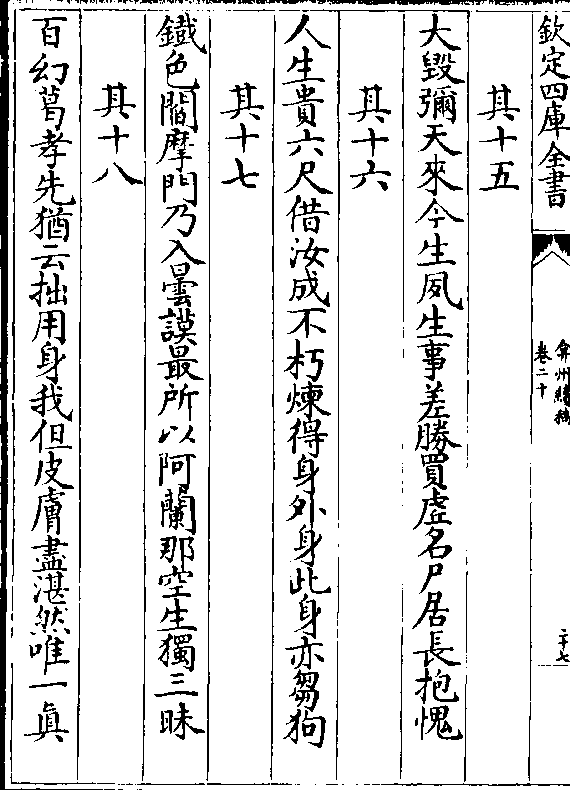 欽定四庫全書
弇州續稿
卷二十
二十七
其十五
大毀彌天來今生夙生事差勝買虛名尸居長抱愧
其十六
人生貴六尺借汝成不朽煉得身外身此身亦芻狗
其十七
鐵色閻摩門乃入曇謨最所以阿蘭那空生獨三昧
其十八
百幻葛孝先猶云拙用身我但皮膚盡湛然唯一眞